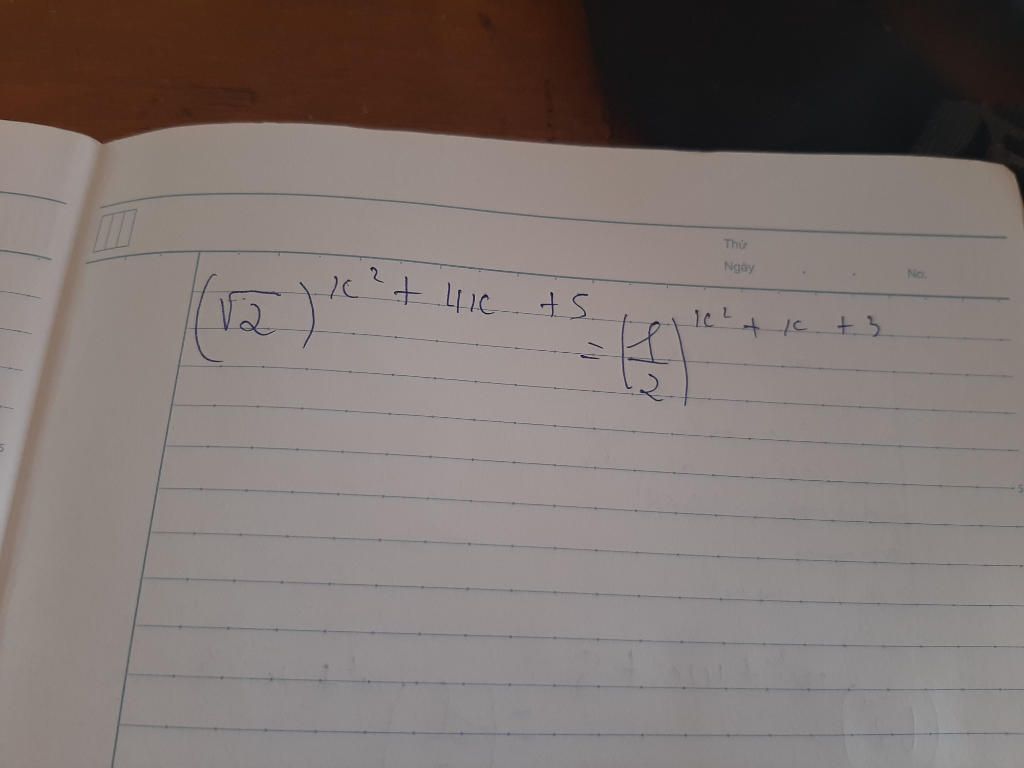 Thứ
Ngày . . No.
(√2)^x² + 4x + 5 = (1/2)^x² + x + 3